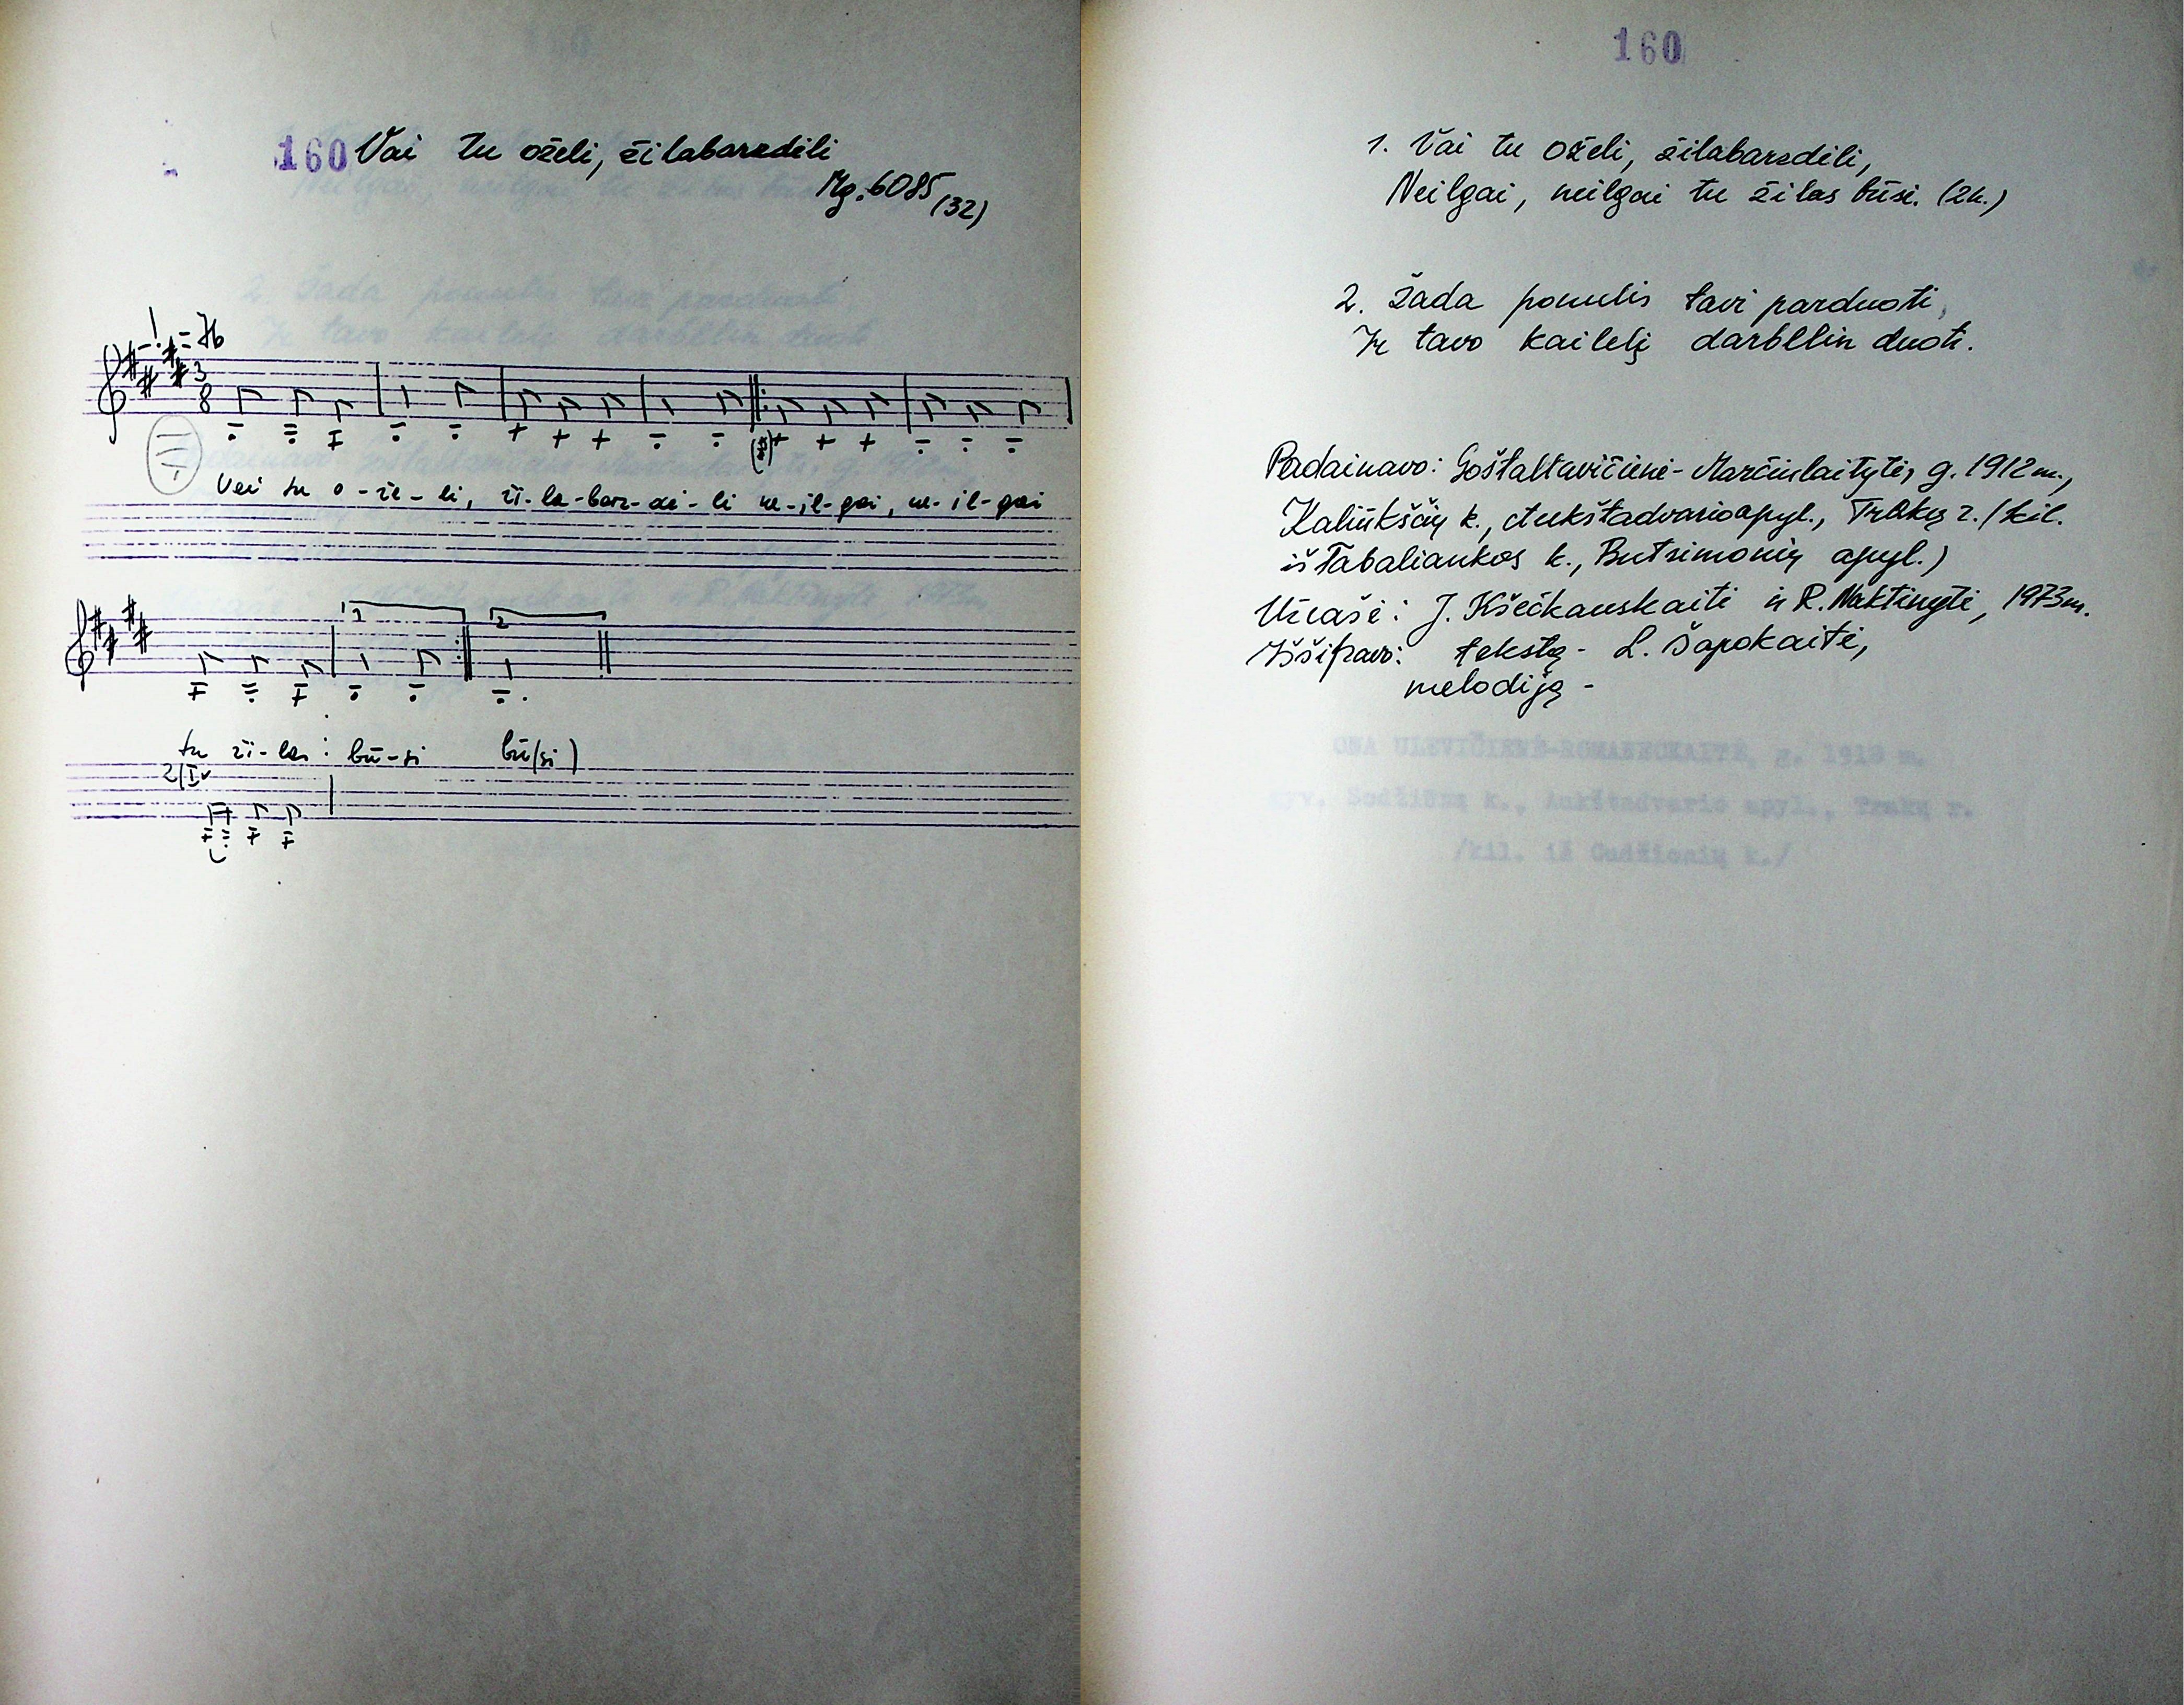 160 Vai tu oželi, žilabarzdėli
Mg. 6085 (32)
= 76
3
8
Vai tu o - že - li, ži - la - barz - dė - li ne - il - gai, ne - il - gai
1 2
tu ži - las bū - si bū(si)
2/I
160
1. Vai tu oželi, žilabarzdėli,
Neilgai, neilgai tu žilas būsi. (2k.)
2. Žada ponulis tavi parduoti,
Ir tavo kailelį darbllin duoti.
Padainavo: Goštaltavičienė - Marčiulaitytė, g. 1912 m.,
Kaliūkščių k., Aukštadvario apyl., Trakų r. / kil.
iš Tabaliaukos k., Butrimonių apyl.)
Užrašė: J. Kšečkauskaitė ir R. Naktinytė, 1973 m.
Iššifravo: tekstą - L. Šapokaitė,
melodiją -
ONA ULEVIČIENĖ-ROMANECKAITĖ, g. 1918 m.
gyv. Sodžiūnų k., Aukštadvario apyl., Trakų r.
/kil. iš Gudžionių k./